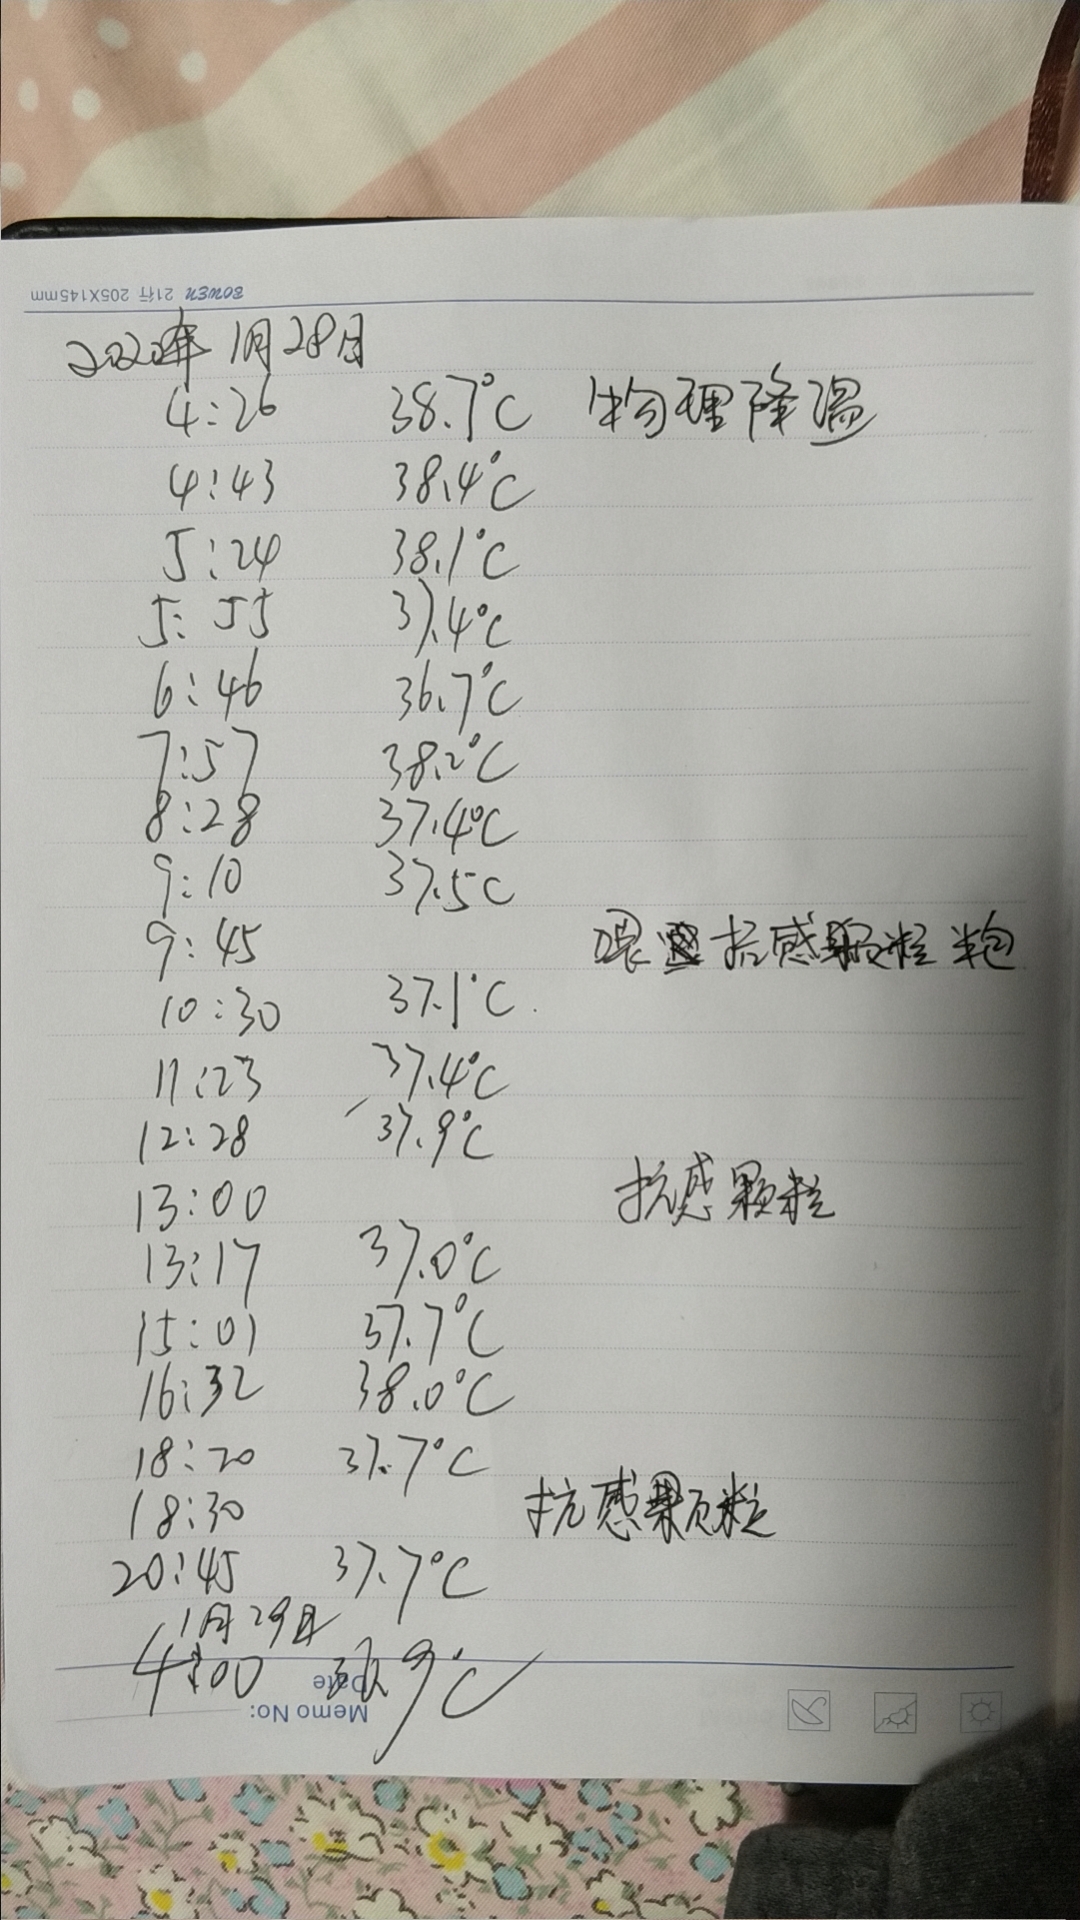 BOWEN 21行 205X145mm
2022年 1月28日
4:26 38.7°C 物理降温
4:43 38.4°C
5:24 38.1°C
5:55 37.4°C
6:46 36.7°C
7:57 38.2°C
8:28 37.4°C
9:10 37.5C
9:45 喂 抗感颗粒
10:30 37.1°C
11:23 37.4°C
12:28 37.9°C
13:00 抗感颗粒
13:17 37.0°C
15:01 37.7°C
16:32 38.0°C
18:20 37.7°C
18:30 抗感颗粒
20:45 37.7°C
1月29日
4:00
Date
Memo No: